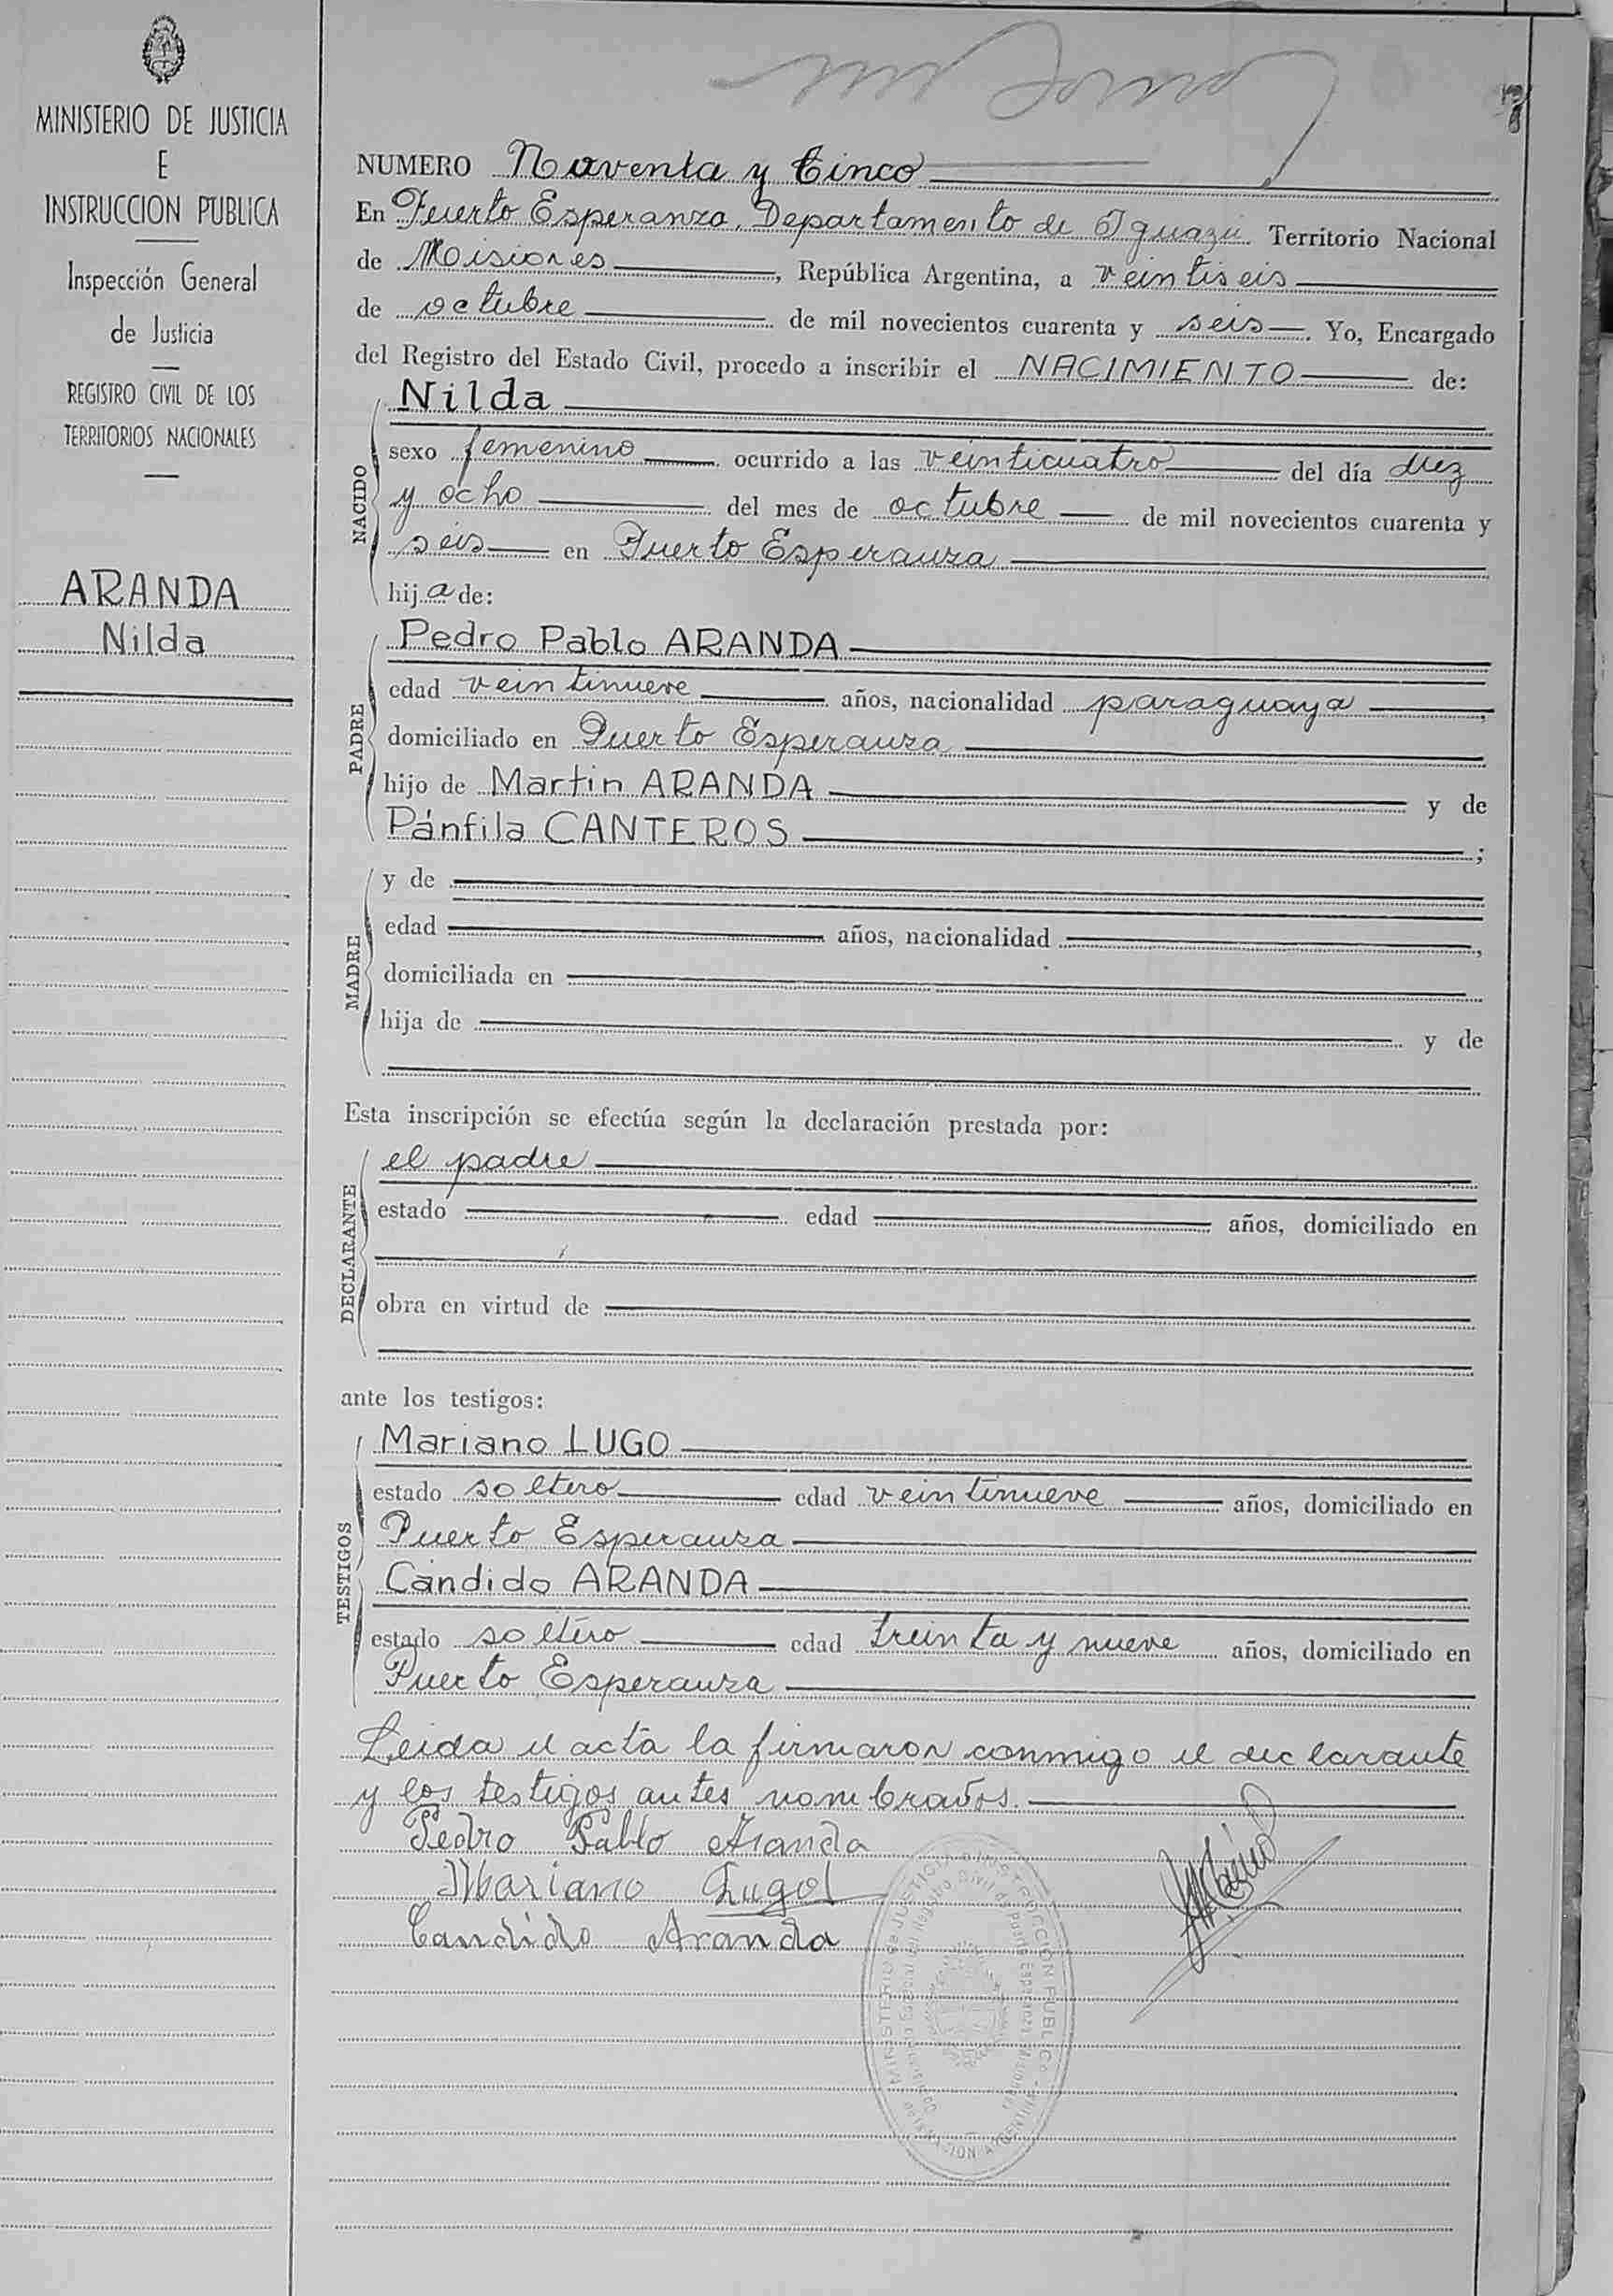 MINISTERIO DE JUSTICIA
E
INSTRUCCION PUBLICA
Inspección General
de Justicia
REGISTRO CIVIL DE LOS
TERRITORIOS NACIONALES
ARANDA
Nilda
NUMERO Noventa y Cinco
En Puerto Esperanza, Departamento de Iguazú Territorio Nacional
de Misiones, República Argentina, a veintiseis
de octubre de mil novecientos cuarenta y seis. Yo, Encargado
del Registro del Estado Civil, procedo a inscribir el NACIMIENTO de:
NACIDO
Nilda
sexo femenino ocurrido a las veinticuatro del día diez
y ocho del mes de octubre de mil novecientos cuarenta y
seis en Puerto Esperanza
hija de:
PADRE
Pedro Pablo ARANDA
edad veintinueve años, nacionalidad paraguaya,
domiciliado en Puerto Esperanza
hijo de Martin ARANDA y de
Pánfila CANTEROS;
MADRE
y de
edad años, nacionalidad ,
domiciliada en
hija de y de
Esta inscripción se efectúa según la declaración prestada por:
DECLARANTE
el padre
estado edad años, domiciliado en
obra en virtud de
ante los testigos:
TESTIGOS
Mariano LUGO
estado soltero edad veintinueve años, domiciliado en
Puerto Esperanza
Cándido ARANDA
estado soltero edad treinta y nueve años, domiciliado en
Puerto Esperanza
Leida el acta la firmaron conmigo el declarante
y los testigos antes nombrados.
Pedro Pablo Aranda
Mariano Lugo
Candido Aranda
MINISTERIO de JUSTICIA e INSTRUCCIÓN PUBLICA
Registro Civil de Puerto Esperanza Misiones
NACION ARGENTINA